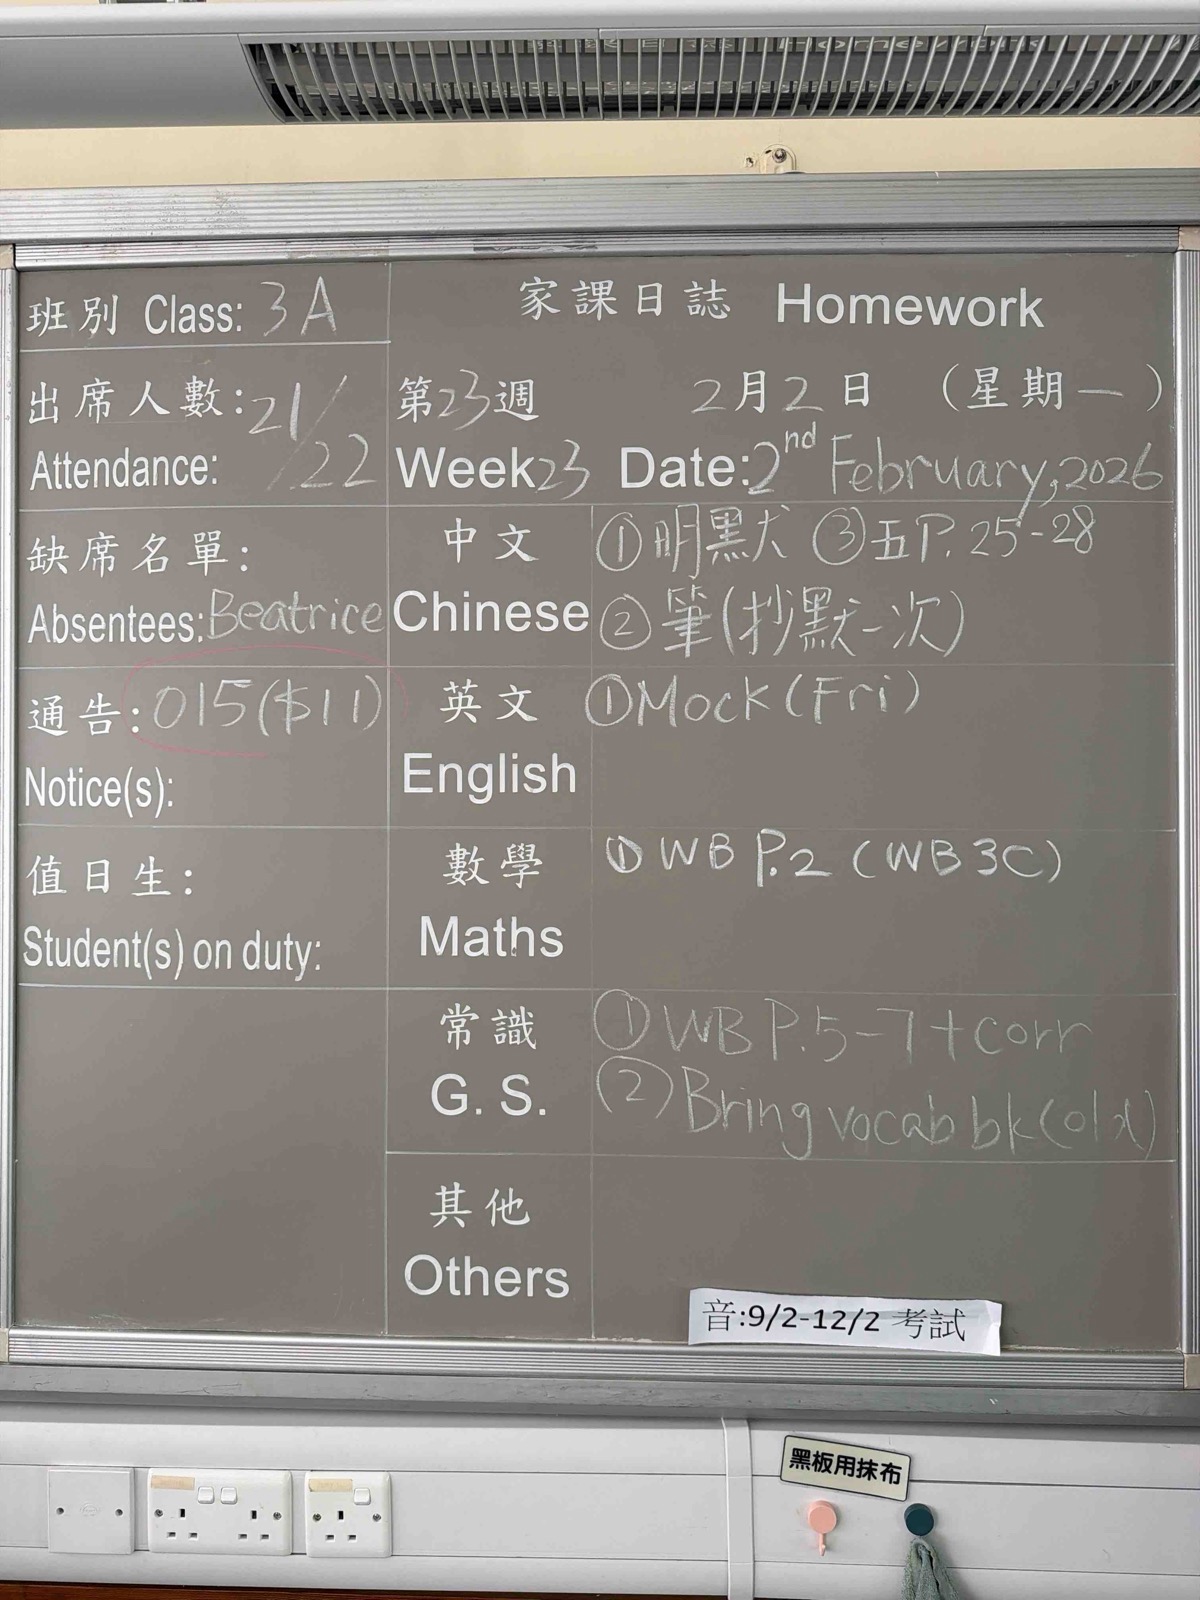 班別 Class: 3A
家課日誌 Homework
出席人數: 21/22
Attendance:
第23週 2月2日 (星期一)
Week23 Date: 2nd February, 2026
缺席名單:
Absentees: Beatrice
中文 ①明默 ③五P. 25-28
Chinese ②筆(抄默一次)
通告: 015($11)
Notice(s):
英文 ①Mock(Fri)
English
值日生:
Student(s) on duty:
數學 ①WB P.2 (WB3C)
Maths
常識 ①WB P.5-7+corr
G. S. ②Bring vocab bk(old)
其他
Others
音:9/2-12/2 考試
黑板用抹布